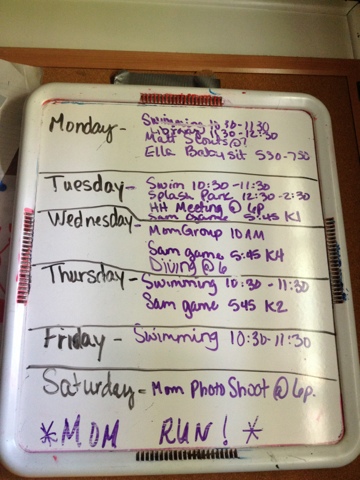 Monday - Swimming 10:30-11:30
Library 11:30-12:30
Matt Scouts @7
Ella Babysit 530-750
Tuesday - Swim 10:30-11:30
Splash Park 12:30-2:30
Meeting @ 6p
Sam Game 5:45 K1
Wednesday - Mom Group 10AM
Sam game 5:45 K4
Diving @ 6
Thursday - Swimming 10:30-11:30
Sam game 545 K2
Friday - Swimming 10:30-11:30
Saturday - Mom Photo Shoot @ 6p.
*MOM RUN! *